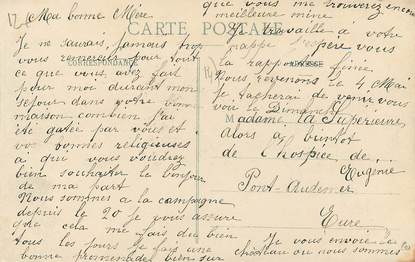 Ma bonne Mère.
CARTE POSTALE
CORRESPONDANCE
Je ne saurais jamais trop
vous remercier pour tout
ce que vous avez fait
pour moi durant mon
séjour dans votre bonne
maison combien j'ai
été gâtée par vous et
vos bonnes religieuses
à qui vous voudrez
bien souhaiter le bonjour
de ma part
Nous sommes à la campagne
depuis le 20 je vous assure
que cela me fais du bien
tous les jours je fais une
bonne promenade bien sur
vous me trouverez encore
meilleure mine
Je travaille à votre
nappe j'espère vous
la rapporter finie
Nous revenons le 4 Mai
je tacherai de venir vous
voir le Dimanche
Alors à bientôt
Madame la Supérieure
de l'hospice de
Pont-Audemer
Eure
Je vous envoie le
château ou nous sommes